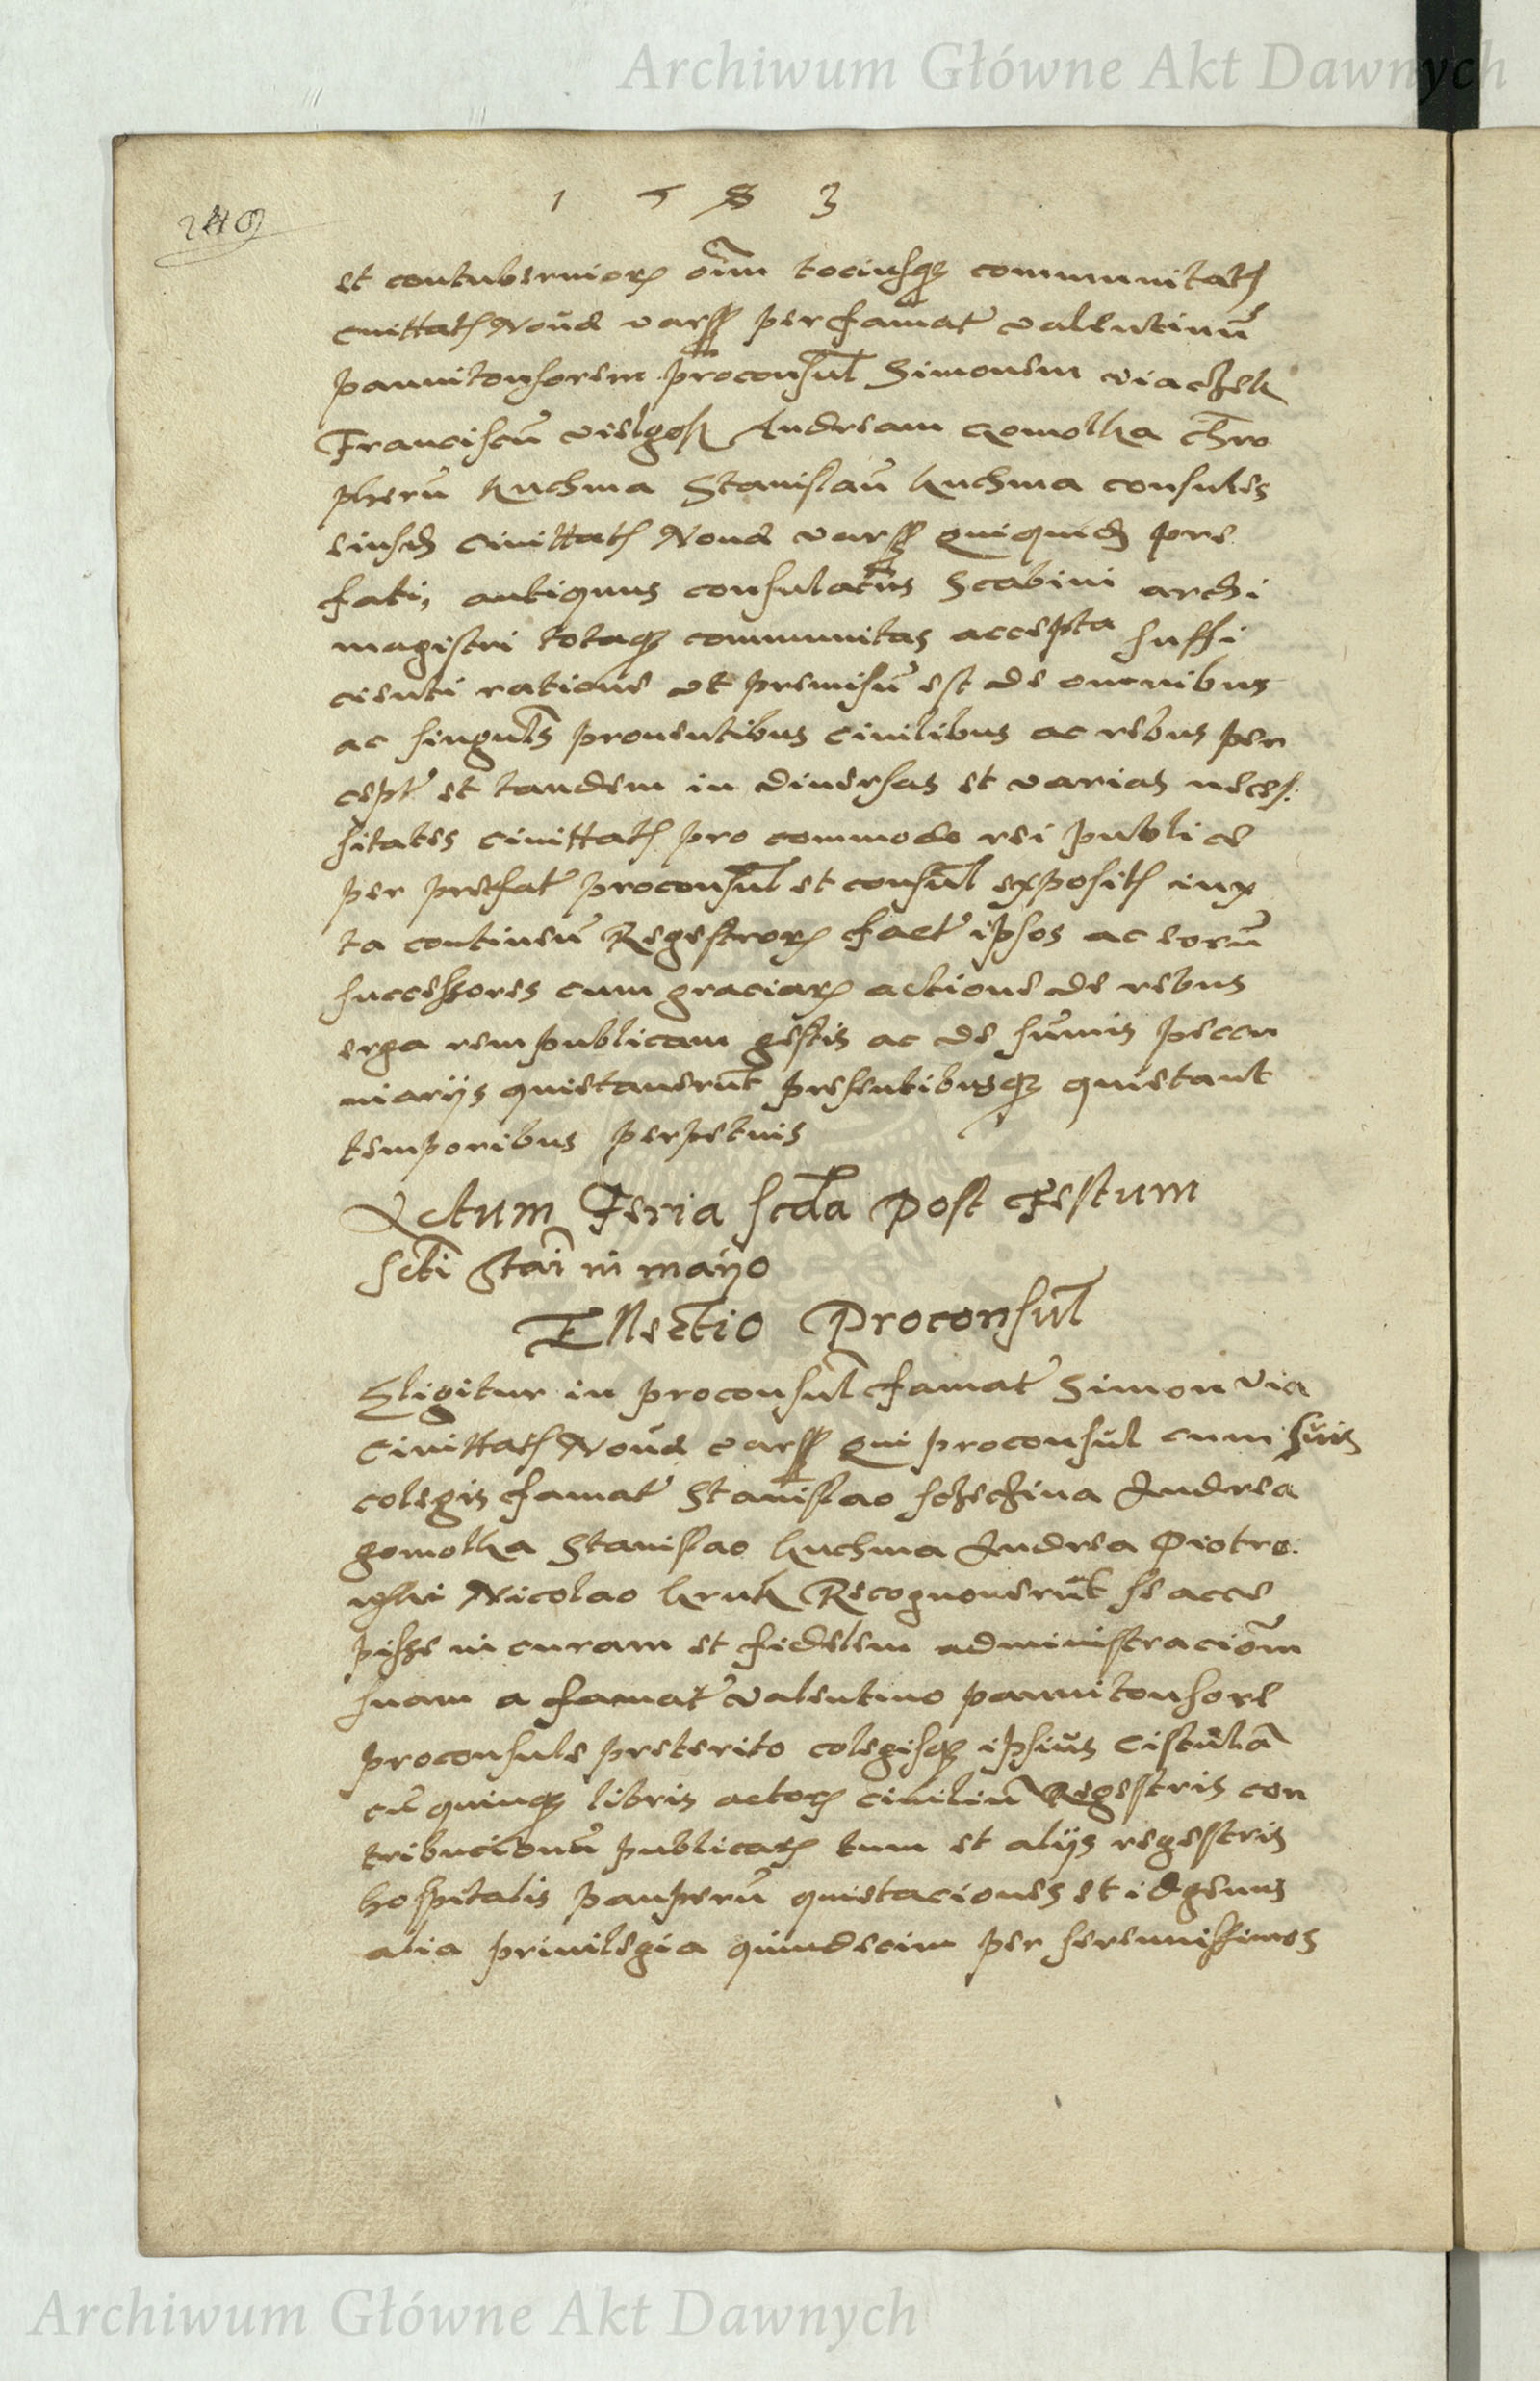 Archiwum Główne Akt Dawnych
1583
249
et contuberniorꝝ oīm tociusqꝫ communitatꝭ
ciuittatꝭ Noua varß per famat valentinū
pannitonsorem proconsul Simonem viaczek
Franciscū vielgoß Andream Gomolka Chro
pherū Kuchma Stanislaū Kuchma consules
eiusd ciuittatꝭ Noua varß Quiquid pre
fati, antiquus consulatus Scabini archi
magistri totaqꝫ communitas accepta suffi
cienti ratione vt premisū est de omnibus
ac singuls prouentibus ciuilibus ac rebus per
cept et tandem in diuersas et varias neces:
sitates ciuittatꝭ pro commodo rei publice
per prefat proconsul et consul expositꝭ iux
ta continen Regestrorꝝ fact ipsos ac eorū
successores cum graciarꝝ actione de rebus
erga rempublicam gestis ac de sumis peccu
niarijs quietauerūt presentibusqꝫ quietant
temporibus perpetuis
Actum Feria scda Post Festum
Scti Stai in mayo
Ellectio Proconsul
Eligitur in proconsul famat Simon via
Ciuittatꝭ Noua varß Qui proconsul cum suis
colegis famat Stanislao Andrea
gomolka Stanislao Kuchma Andrea Piotro:
wski Nicolao Kruk Recognouerūt se acce
pisse in curam et fidelem administraciom
suam a famat valentino pannitonsore
proconsule preterito colegisqꝫ ipsius Cistulā
cū quinqꝫ libris actorꝝ ciuiliū Regestris con
tribucionū publicarꝝ tum et alijs regestris
hospitalis pauperū quietaciones et idgenus
alia priuilegia quindecim per serenissimos
Archiwum Główne Akt Dawnych